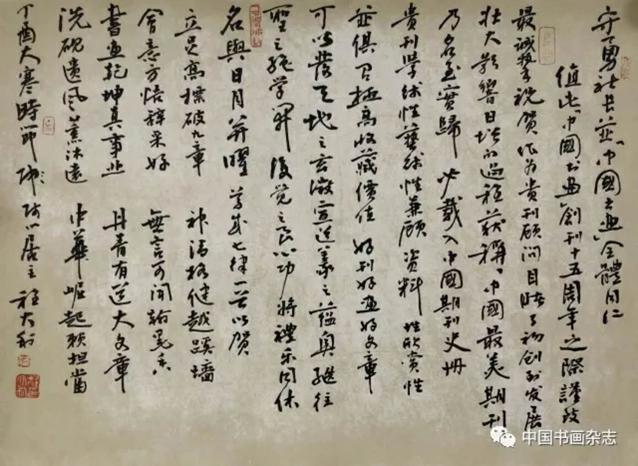 守勇社长并《中国书画》全体同仁
值此《中国书画》创刊十五周年之际谨致
最诚挚祝贺作为贵刊顾问目睹了初创到发展
壮大影响日增的过程获称中国最美期刊
乃名至实归必载入中国期刊史册
贵刊学术性艺术性兼顾资料性欣赏性
并俱具极高收藏价值好刊好画好文章
可以发天地之玄微宣道义之蕴奥继往
圣之绝学开后觉之良心功将礼乐同休
名与日月并曜 ​并成七律一首以贺
立足高标破九章 神清格健越蹊墙
会意方悟辞采好 无言可闻翰墨香
书画乾坤真事业 丹青有道大文章
洗砚遗风薰沐远 中华崛起赖担当
丁酉大寒时节 师心居主程大利
中国书画杂志